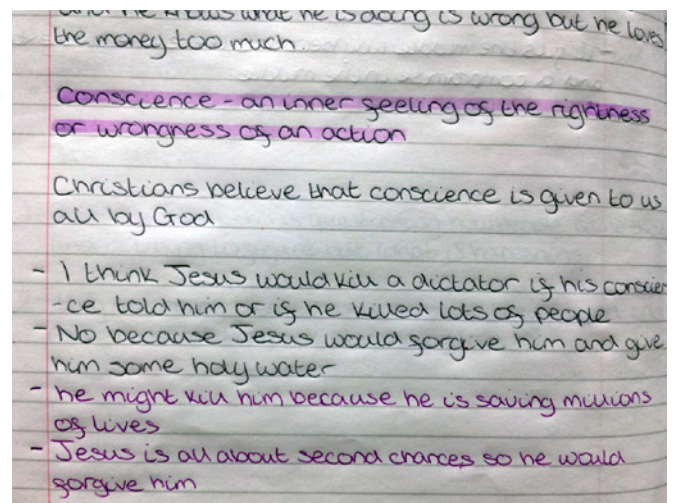 and he knows what he is doing is wrong but he loves
the money too much.
Conscience - an inner feeling of the rightness
or wrongness of an action
Christians believe that conscience is given to us
all by God
- I think Jesus would kill a dictator if his conscien
-ce told him or if he killed lots of people
- No because Jesus would forgive him and give
him some holy water
- he might kill him because he is saving millions
of lives
- Jesus is all about second chances so he would
forgive him